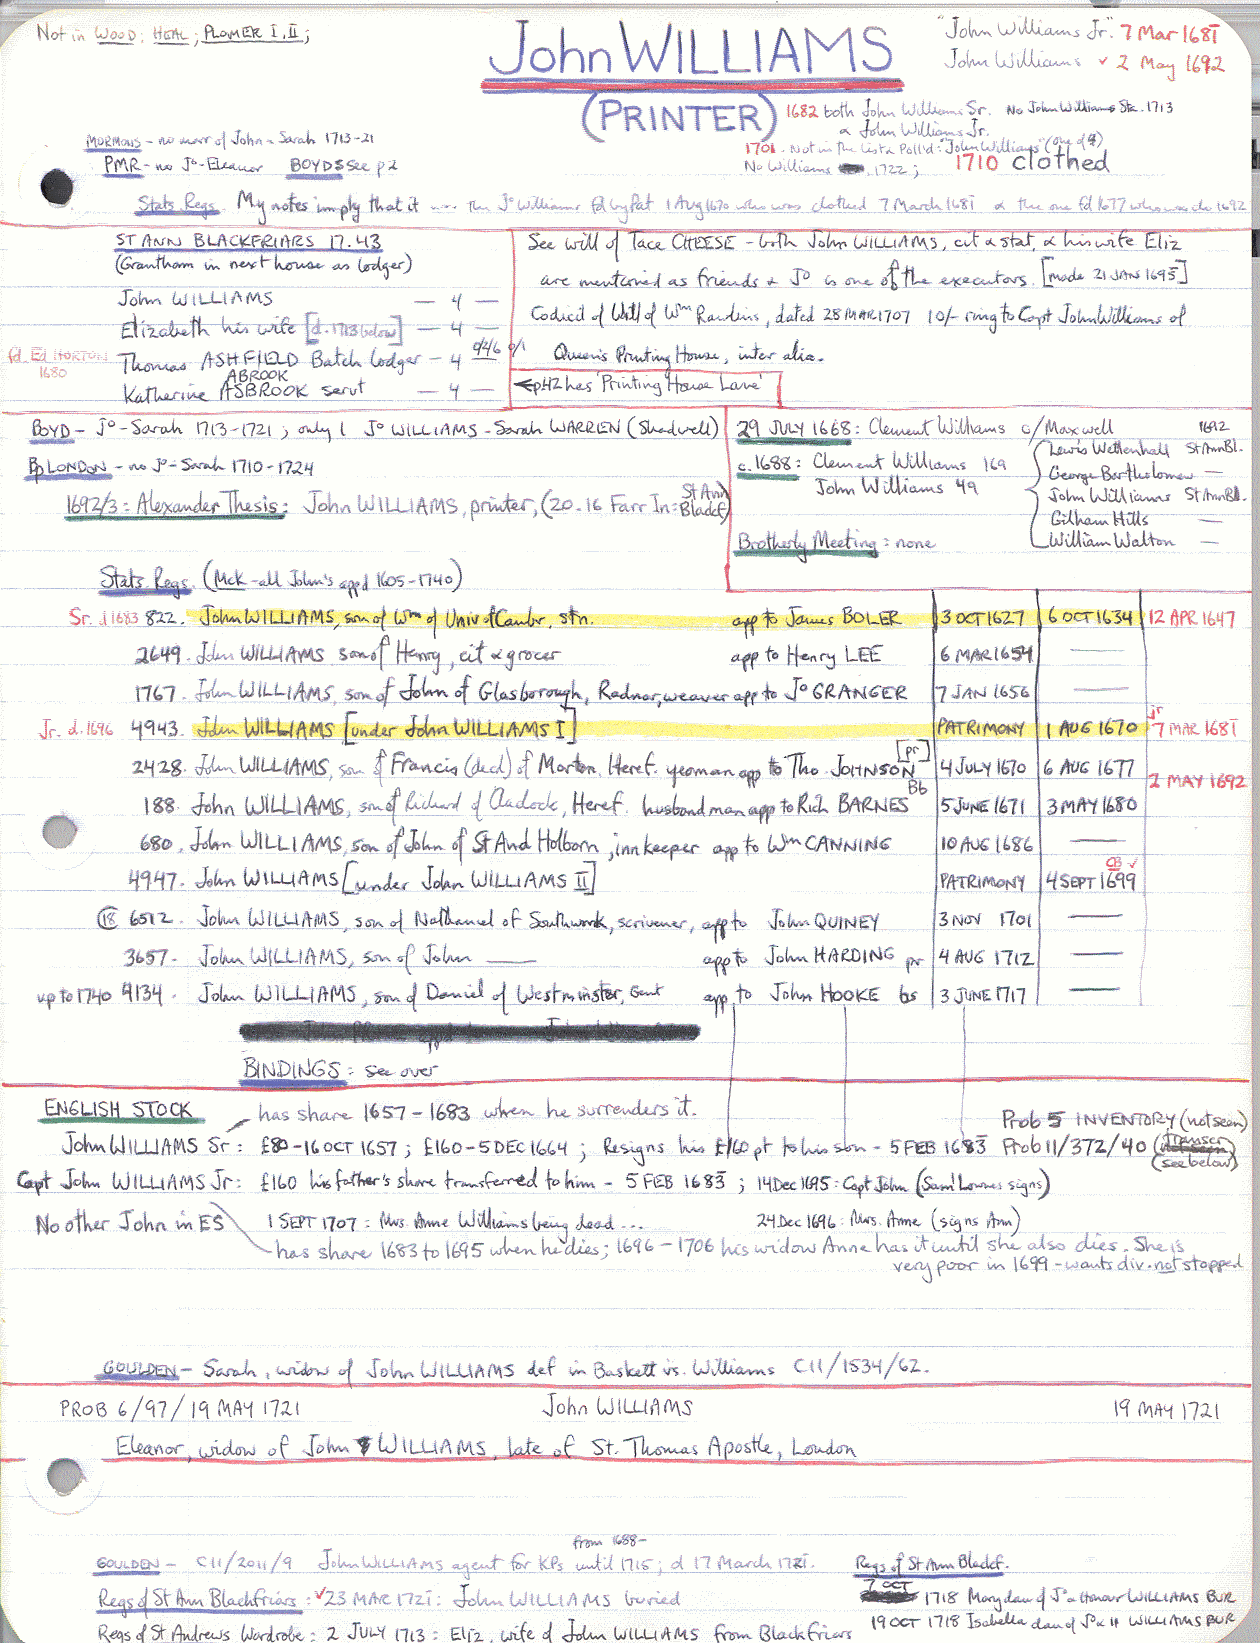 Not in WOOD; HEAL; PLOMER I, II;
John WILLIAMS
(PRINTER)
"John Williams Jr." 7 Mar 1681
John Williams ✓ 2 May 1692
1682 both John Williams Sr. No John Williams Sta. 1713
& John Williams Jr.
1701. Not in the List & Poll'd: "John Williams" (one of 4)
No Williams 1722; 1710 clothed
MORMONS - no marr of John & Sarah 1713-21
PMR - no Jo-Eleanor BOYDS see p2
Stats. Regs. My notes imply that it was the Jo Williams fd by Pat 1 Aug 1670 who was clothed 7 March 1681 & the one fd 1677 who was clo 1692
ST ANN BLACKFRIARS 17.43
(Grantham in next house as lodger)
John WILLIAMS — 4 —
Elizabeth his wife [d. 1713 below] — 4 —
fd. Ed HORTON 1680 Thomas ASHFIELD Batch lodger — 4
ABROOK
Katherine ASBROOK servt — 4 —
See will of Tace CHEESE - both John WILLIAMS, cit & stat, & his wife Eliz
are mentioned as friends & Jo is one of the executors. [made 21 JAN 1695]
Codicil of Will of Wm Rawlins, dated 28 MAR 1707 10/- ring to Capt John Williams of
Queen's Printing House, inter alia.
← p42 has 'Printing House Lane'
BOYD - Jo-Sarah 1713-1721; only 1 Jo WILLIAMS - Sarah WARREN (Shadwell)
Bp LONDON - no Jo-Sarah 1710-1724
1692/3: Alexander Thesis: John WILLIAMS, printer, (20.16 Farr In: St Ann Blackf)
29 JULY 1668: Clement Williams c/Maxwell 1692
c.1688: Clement Williams 169
John Williams 49
Lewis Wethenhall St Ann Bl.
George Bartholomew —
John Williams St Ann Bl.
Gilham Hills —
William Walton —
Brotherly Meeting: none
Stats. Regs. (McK - all John's app'd 1605-1740)
Sr. d 1683 822. John WILLIAMS, son of Wm of Univ of Cambr, stn. app to James BOLER 3 OCT 1627 6 OCT 1634 12 APR 1647
2649. John WILLIAMS son of Henry, cit & grocer app to Henry LEE 6 MAR 1654 —
1767. John WILLIAMS, son of John of Glasborough, Radnor, weaver app to Jo GRANGER 7 JAN 1656 —
Jr. d. 1696 4943. John WILLIAMS [under John WILLIAMS I] PATRIMONY 1 AUG 1670 Jr 7 MAR 1681
2428. John WILLIAMS, son of Francis (decd) of Morton, Heref. yeoman app to Tho JOHNSON [pr] 4 JULY 1670 6 AUG 1677 2 MAY 1692
188. John WILLIAMS, son of Richard of Cladock, Heref. husbandman app to Rich BARNES Bb 5 JUNE 1671 3 MAY 1680
680. John WILLIAMS, son of John of St And Holborn, innkeeper app to Wm CANNING 10 AUG 1686 —
4947. John WILLIAMS [under John WILLIAMS II] PATRIMONY 4 SEPT 1699 CB ✓
18 6512. John WILLIAMS, son of Nathaniel of Southwark, scrivener, app to John QUINEY 3 NOV 1701 —
3657. John WILLIAMS, son of John — app to John HARDING pr 4 AUG 1712 —
up to 1740 4134. John WILLIAMS, son of Daniel of Westminster, Gent app to John HOOKE bs 3 JUNE 1717 —
BINDINGS: see over
ENGLISH STOCK has share 1657-1683 when he surrenders it.
Prob 5 INVENTORY (not seen)
John WILLIAMS Sr: £80-16 OCT 1657; £160-5 DEC 1664; Resigns his £160 pt to his son - 5 FEB 1683 Prob 11/372/40 (Transcr (see below)
Capt John WILLIAMS Jr: £160 his father's share transferred to him - 5 FEB 1683; 14 Dec 1695: Capt John (Saml Lownes signs)
No other John in ES 1 SEPT 1707: Mrs. Anne Williams being dead ... 24 Dec 1696: Mrs. Anne (signs Ann)
has share 1683 to 1695 when he dies; 1696-1706 his widow Anne has it until she also dies. She is
very poor in 1699 - wants div. not stopped
GOULDEN - Sarah, widow of John WILLIAMS def in Baskett vs. Williams C11/1534/62.
PROB 6/97/19 MAY 1721 John WILLIAMS 19 MAY 1721
Eleanor, widow of John WILLIAMS, late of St. Thomas Apostle, London
from 1688-
GOULDEN - C11/2011/9 John WILLIAMS agent for KPs until 1715; d 17 March 1721.
Regs of St Ann Blackfriars: ✓23 MAR 1721: John WILLIAMS buried
Regs of St Andrews Wardrobe: 2 JULY 1713: Eliz, wife of John WILLIAMS from Blackfriars
Regs of St Ann Blackf.
7 OCT 1718 Mary dau of Jo & Honour WILLIAMS BUR
19 OCT 1718 Isabella dau of Jo & H WILLIAMS BUR